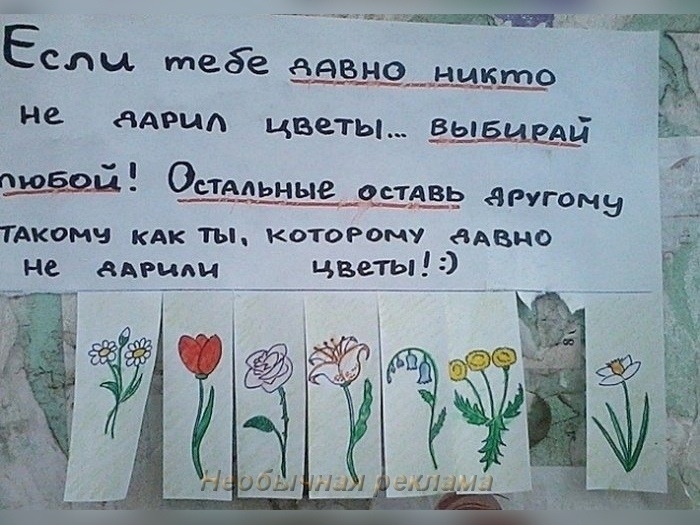 Если тебе давно никто
не дарил цветы... выбирай
любой! Остальные оставь другому
такому как ты, которому давно
не дарили цветы! :)
Необычная реклама